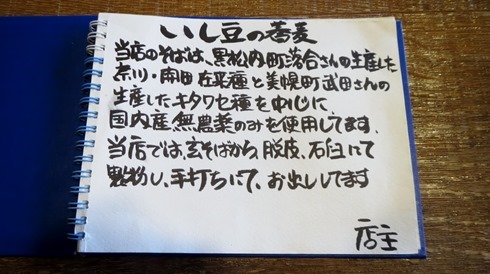 いし豆の蕎麦
当店のそばは、黒松内町落合さんの生産した
奈川・南田在来種と美幌町武田さんの
生産したキタワセ種を中心に、
国内産無農薬のみを使用してます、
当店では、玄そばから脱皮、石臼にて
製粉し、手打ちにて、お出ししてます
店主